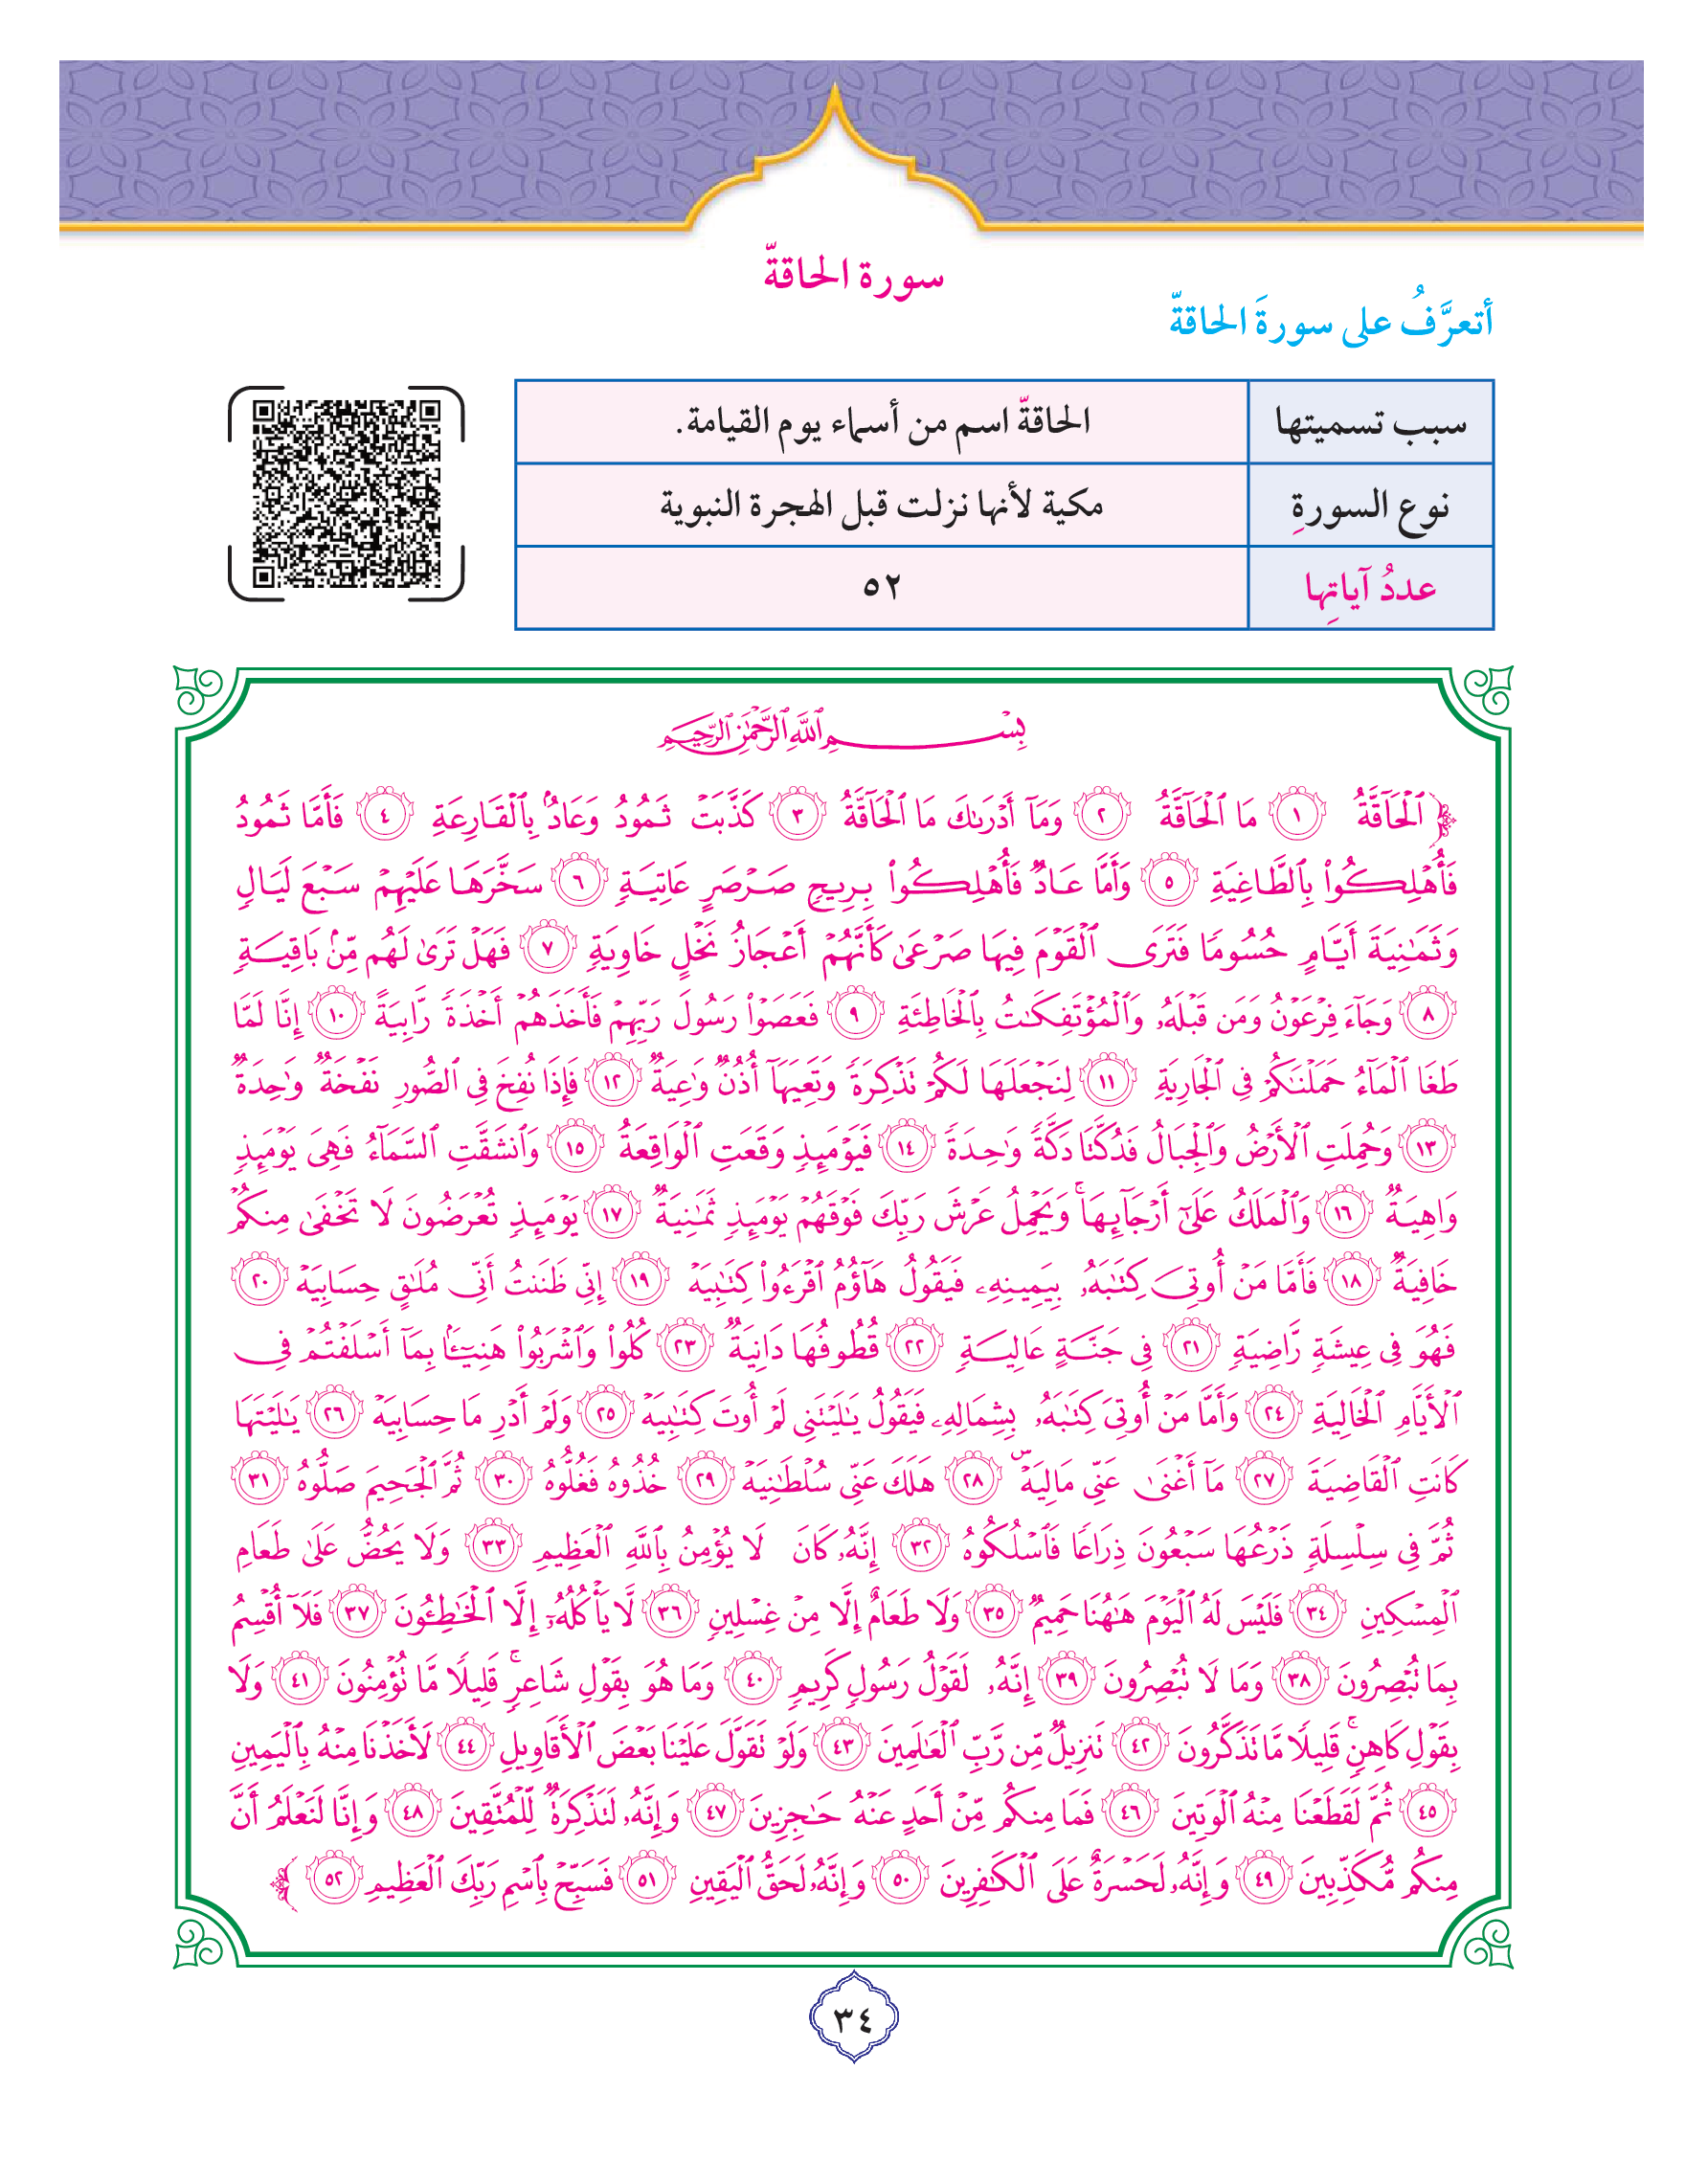 سورة الحاقةّ
أتعرَّفُ على سورةَ الحاقةّ
سبب تسميتها الحاقةّ اسم من أسماء يوم القيامة.
نوع السورةِ مكية لأنها نزلت قبل الهجرة النبوية
عددُ آياتِها ٥٢
بِسْمِ ٱللَّهِ ٱلرَّحْمَٰنِ ٱلرَّحِيمِ
﴿ٱلْحَآقَّةُ ١ مَا ٱلْحَآقَّةُ ٢ وَمَآ أَدْرَىٰكَ مَا ٱلْحَآقَّةُ ٣ كَذَّبَتْ ثَمُودُ وَعَادُۢ بِٱلْقَارِعَةِ ٤ فَأَمَّا ثَمُودُ
فَأُهْلِكُوا۟ بِٱلطَّاغِيَةِ ٥ وَأَمَّا عَادٌ فَأُهْلِكُوا۟ بِرِيحٍ صَرْصَرٍ عَاتِيَةٍ ٦ سَخَّرَهَا عَلَيْهِمْ سَبْعَ لَيَالٍ
وَثَمَٰنِيَةَ أَيَّامٍ حُسُومًا فَتَرَى ٱلْقَوْمَ فِيهَا صَرْعَىٰ كَأَنَّهُمْ أَعْجَازُ نَخْلٍ خَاوِيَةٍ ٧ فَهَلْ تَرَىٰ لَهُم مِّنۢ بَاقِيَةٍ
٨ وَجَآءَ فِرْعَوْنُ وَمَن قَبْلَهُۥ وَٱلْمُؤْتَفِكَٰتُ بِٱلْخَاطِئَةِ ٩ فَعَصَوْا۟ رَسُولَ رَبِّهِمْ فَأَخَذَهُمْ أَخْذَةً رَّابِيَةً ١٠ إِنَّا لَمَّا
طَغَا ٱلْمَآءُ حَمَلْنَٰكُمْ فِى ٱلْجَارِيَةِ ١١ لِنَجْعَلَهَا لَكُمْ تَذْكِرَةً وَتَعِيَهَآ أُذُنٌ وَٰعِيَةٌ ١٢ فَإِذَا نُفِخَ فِى ٱلصُّورِ نَفْخَةٌ وَٰحِدَةٌ
١٣ وَحُمِلَتِ ٱلْأَرْضُ وَٱلْجِبَالُ فَدُكَّتَا دَكَّةً وَٰحِدَةً ١٤ فَيَوْمَئِذٍ وَقَعَتِ ٱلْوَاقِعَةُ ١٥ وَٱنشَقَّتِ ٱلسَّمَآءُ فَهِىَ يَوْمَئِذٍ
وَاهِيَةٌ ١٦ وَٱلْمَلَكُ عَلَىٰٓ أَرْجَآئِهَا ۚ وَيَحْمِلُ عَرْشَ رَبِّكَ فَوْقَهُمْ يَوْمَئِذٍ ثَمَٰنِيَةٌ ١٧ يَوْمَئِذٍ تُعْرَضُونَ لَا تَخْفَىٰ مِنكُمْ
خَافِيَةٌ ١٨ فَأَمَّا مَنْ أُوتِىَ كِتَٰبَهُۥ بِيَمِينِهِۦ فَيَقُولُ هَآؤُمُ ٱقْرَءُوا۟ كِتَٰبِيَهْ ١٩ إِنِّى ظَنَنتُ أَنِّى مُلَٰقٍ حِسَابِيَهْ ٢٠
فَهُوَ فِى عِيشَةٍ رَّاضِيَةٍ ٢١ فِى جَنَّةٍ عَالِيَةٍ ٢٢ قُطُوفُهَا دَانِيَةٌ ٢٣ كُلُوا۟ وَٱشْرَبُوا۟ هَنِيٓـًٔۢا بِمَآ أَسْلَفْتُمْ فِى
ٱلْأَيَّامِ ٱلْخَالِيَةِ ٢٤ وَأَمَّا مَنْ أُوتِىَ كِتَٰبَهُۥ بِشِمَالِهِۦ فَيَقُولُ يَٰلَيْتَنِى لَمْ أُوتَ كِتَٰبِيَهْ ٢٥ وَلَمْ أَدْرِ مَا حِسَابِيَهْ ٢٦ يَٰلَيْتَهَا
كَانَتِ ٱلْقَاضِيَةَ ٢٧ مَآ أَغْنَىٰ عَنِّى مَالِيَهْ ۜ ٢٨ هَلَكَ عَنِّى سُلْطَٰنِيَهْ ٢٩ خُذُوهُ فَغُلُّوهُ ٣٠ ثُمَّ ٱلْجَحِيمَ صَلُّوهُ ٣١
ثُمَّ فِى سِلْسِلَةٍ ذَرْعُهَا سَبْعُونَ ذِرَاعًا فَٱسْلُكُوهُ ٣٢ إِنَّهُۥ كَانَ لَا يُؤْمِنُ بِٱللَّهِ ٱلْعَظِيمِ ٣٣ وَلَا يَحُضُّ عَلَىٰ طَعَامِ
ٱلْمِسْكِينِ ٣٤ فَلَيْسَ لَهُ ٱلْيَوْمَ هَٰهُنَا حَمِيمٌ ٣٥ وَلَا طَعَامٌ إِلَّا مِنْ غِسْلِينٍ ٣٦ لَّا يَأْكُلُهُۥٓ إِلَّا ٱلْخَٰطِـُٔونَ ٣٧ فَلَآ أُقْسِمُ
بِمَا تُبْصِرُونَ ٣٨ وَمَا لَا تُبْصِرُونَ ٣٩ إِنَّهُۥ لَقَوْلُ رَسُولٍ كَرِيمٍ ٤٠ وَمَا هُوَ بِقَوْلِ شَاعِرٍ ۚ قَلِيلًا مَّا تُؤْمِنُونَ ٤١ وَلَا
بِقَوْلِ كَاهِنٍ ۚ قَلِيلًا مَّا تَذَكَّرُونَ ٤٢ تَنزِيلٌ مِّن رَّبِّ ٱلْعَٰلَمِينَ ٤٣ وَلَوْ تَقَوَّلَ عَلَيْنَا بَعْضَ ٱلْأَقَاوِيلِ ٤٤ لَأَخَذْنَا مِنْهُ بِٱلْيَمِينِ
٤٥ ثُمَّ لَقَطَعْنَا مِنْهُ ٱلْوَتِينَ ٤٦ فَمَا مِنكُم مِّنْ أَحَدٍ عَنْهُ حَٰجِزِينَ ٤٧ وَإِنَّهُۥ لَتَذْكِرَةٌ لِّلْمُتَّقِينَ ٤٨ وَإِنَّا لَنَعْلَمُ أَنَّ
مِنكُم مُّكَذِّبِينَ ٤٩ وَإِنَّهُۥ لَحَسْرَةٌ عَلَى ٱلْكَٰفِرِينَ ٥٠ وَإِنَّهُۥ لَحَقُّ ٱلْيَقِينِ ٥١ فَسَبِّحْ بِٱسْمِ رَبِّكَ ٱلْعَظِيمِ ٥٢﴾
٣٤